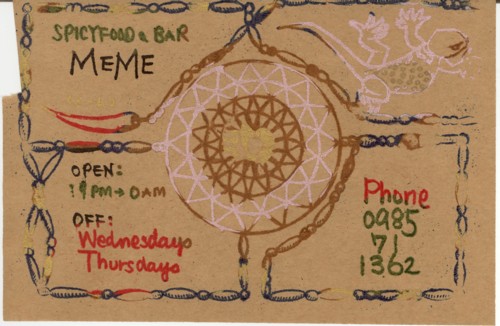 SPICYFOOD & BAR
MEME
OPEN:
19PM→0AM
OFF:
Wednesdays
Thursdays
Phone
0985
71
1362